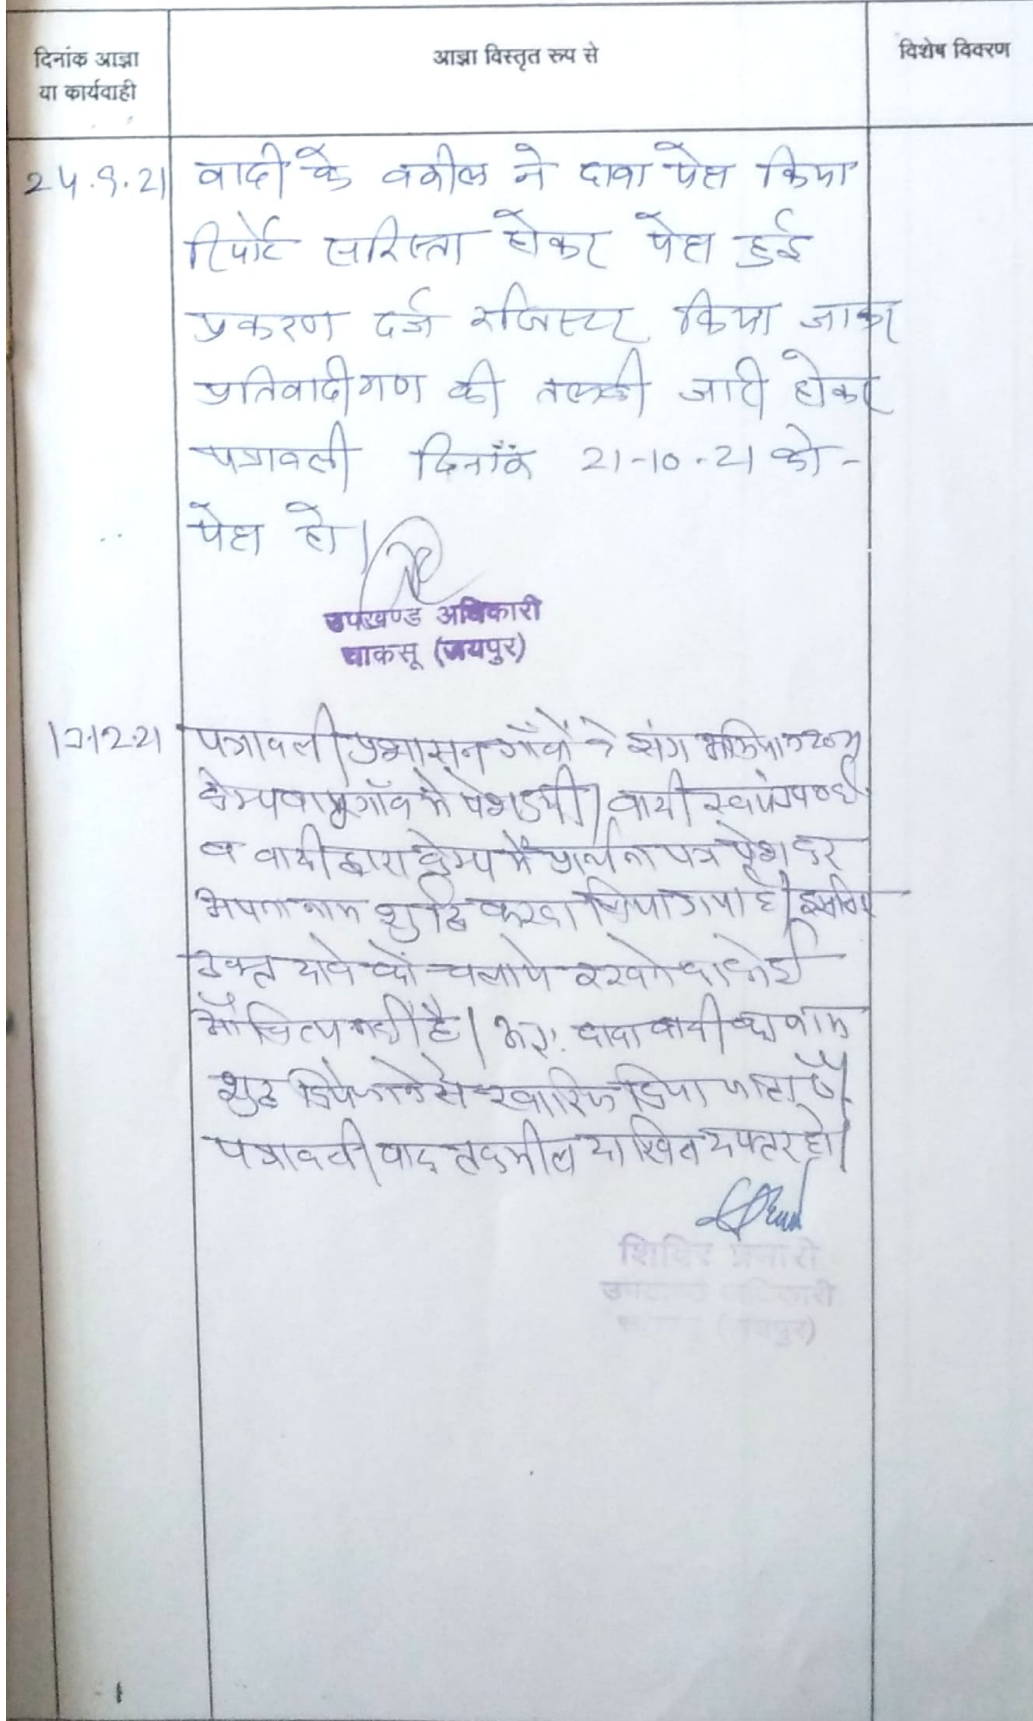 दिनांक आज्ञा
या कार्यवाही
आज्ञा विस्तृत रूप से
विशेष विवरण
24.9.21 वादी के वकील ने दावा पेश किया
रिपोर्ट सरिस्ता होकर पेश हुई
प्रकरण दर्ज रजिस्टर किया जाकर
प्रतिवादीगण की तलबी जारी होकर
पत्रावली दिनाँक 21-10-21 को -
पेश हो।
उपखण्ड अधिकारी
चाकसू (जयपुर)
पत्रावली प्रशासन गाँवों के संग अभियान
केम्प में पेश हुयी। वादी
व वादी द्वारा केम्प में प्रार्थना पत्र पेश कर
अपना नाम शुद्धि करवा लिया गया है। इसलिए
उक्त दावे को चलाये रखने का कोई
औचित्य नहीं है। अतः दावा वादी का नाम
शुद्ध किये जाने से खारिज किया जाता है।
पत्रावली बाद तकमील दाखिल दफ्तर हो।
शिविर प्रभारी
उपखण्ड अधिकारी
(जयपुर)